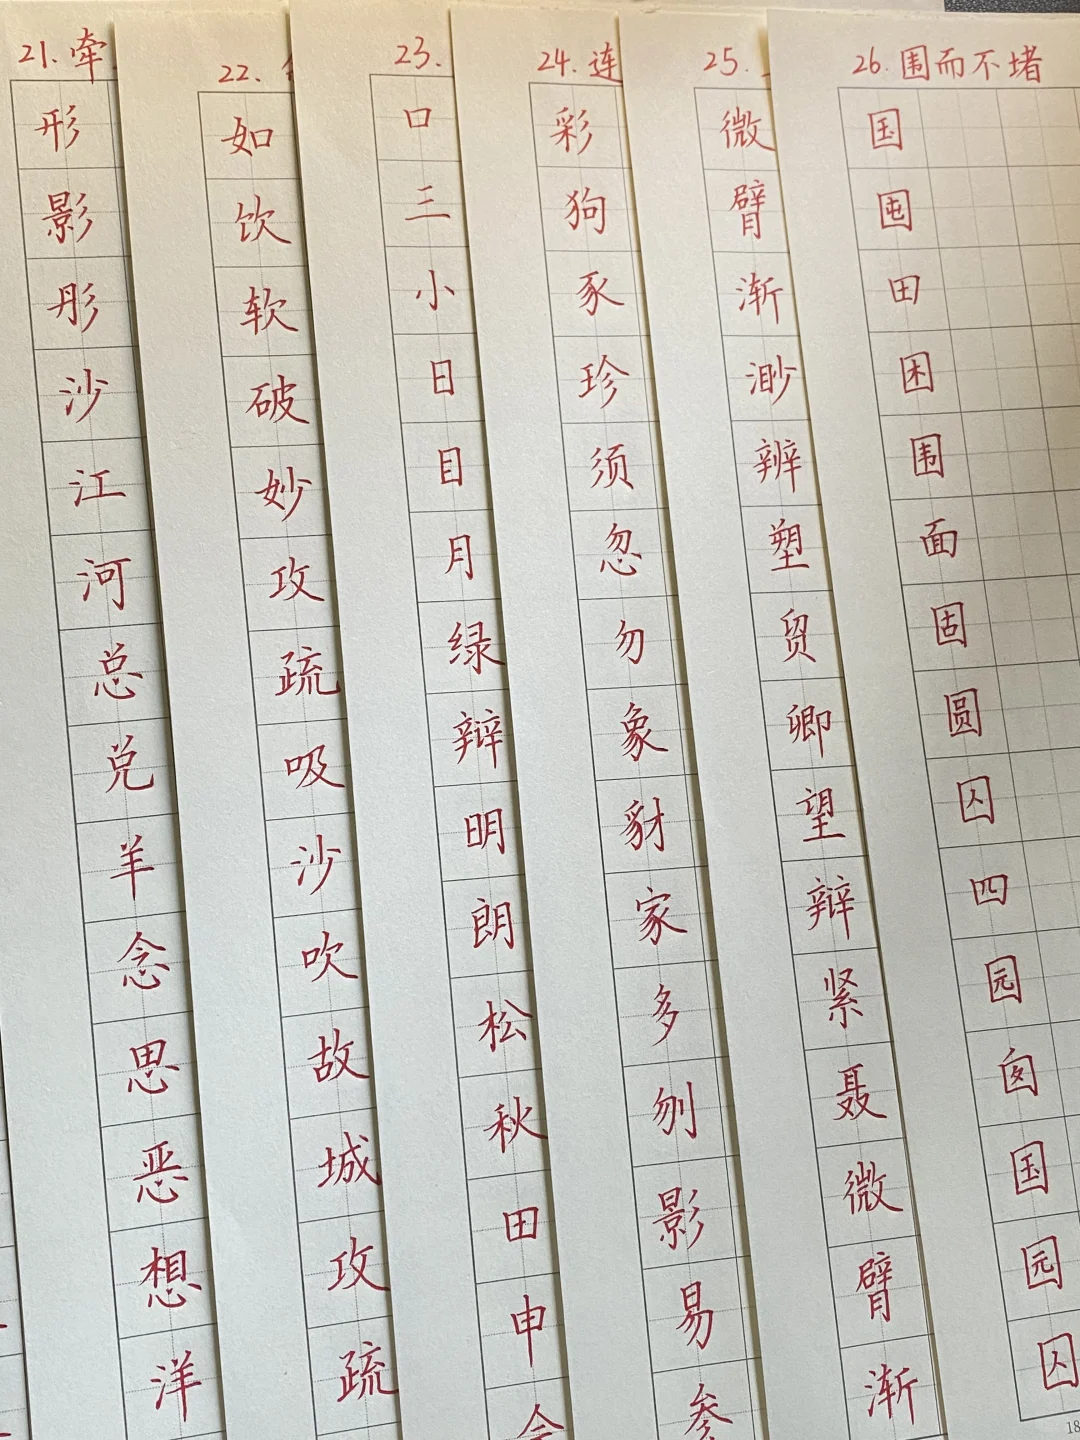 21. 牵
形
影
彤
沙
江
河
总
兑
羊
念
思
恶
想
洋
22.
如
饮
软
破
妙
攻
疏
吸
沙
吹
故
城
攻
疏
23.
口
三
小
日
目
月
绿
辩
明
朗
松
秋
田
申
24. 连
彩
狗
豕
珍
须
忽
勿
象
豺
家
多
刎
影
易
参
25.
微
臂
渐
渺
辨
塑
贸
卿
望
辩
紧
聂
微
臂
渐
26. 围而不堵
国
囤
田
困
围
面
固
圆
囚
四
园
囱
国
园
囚
18